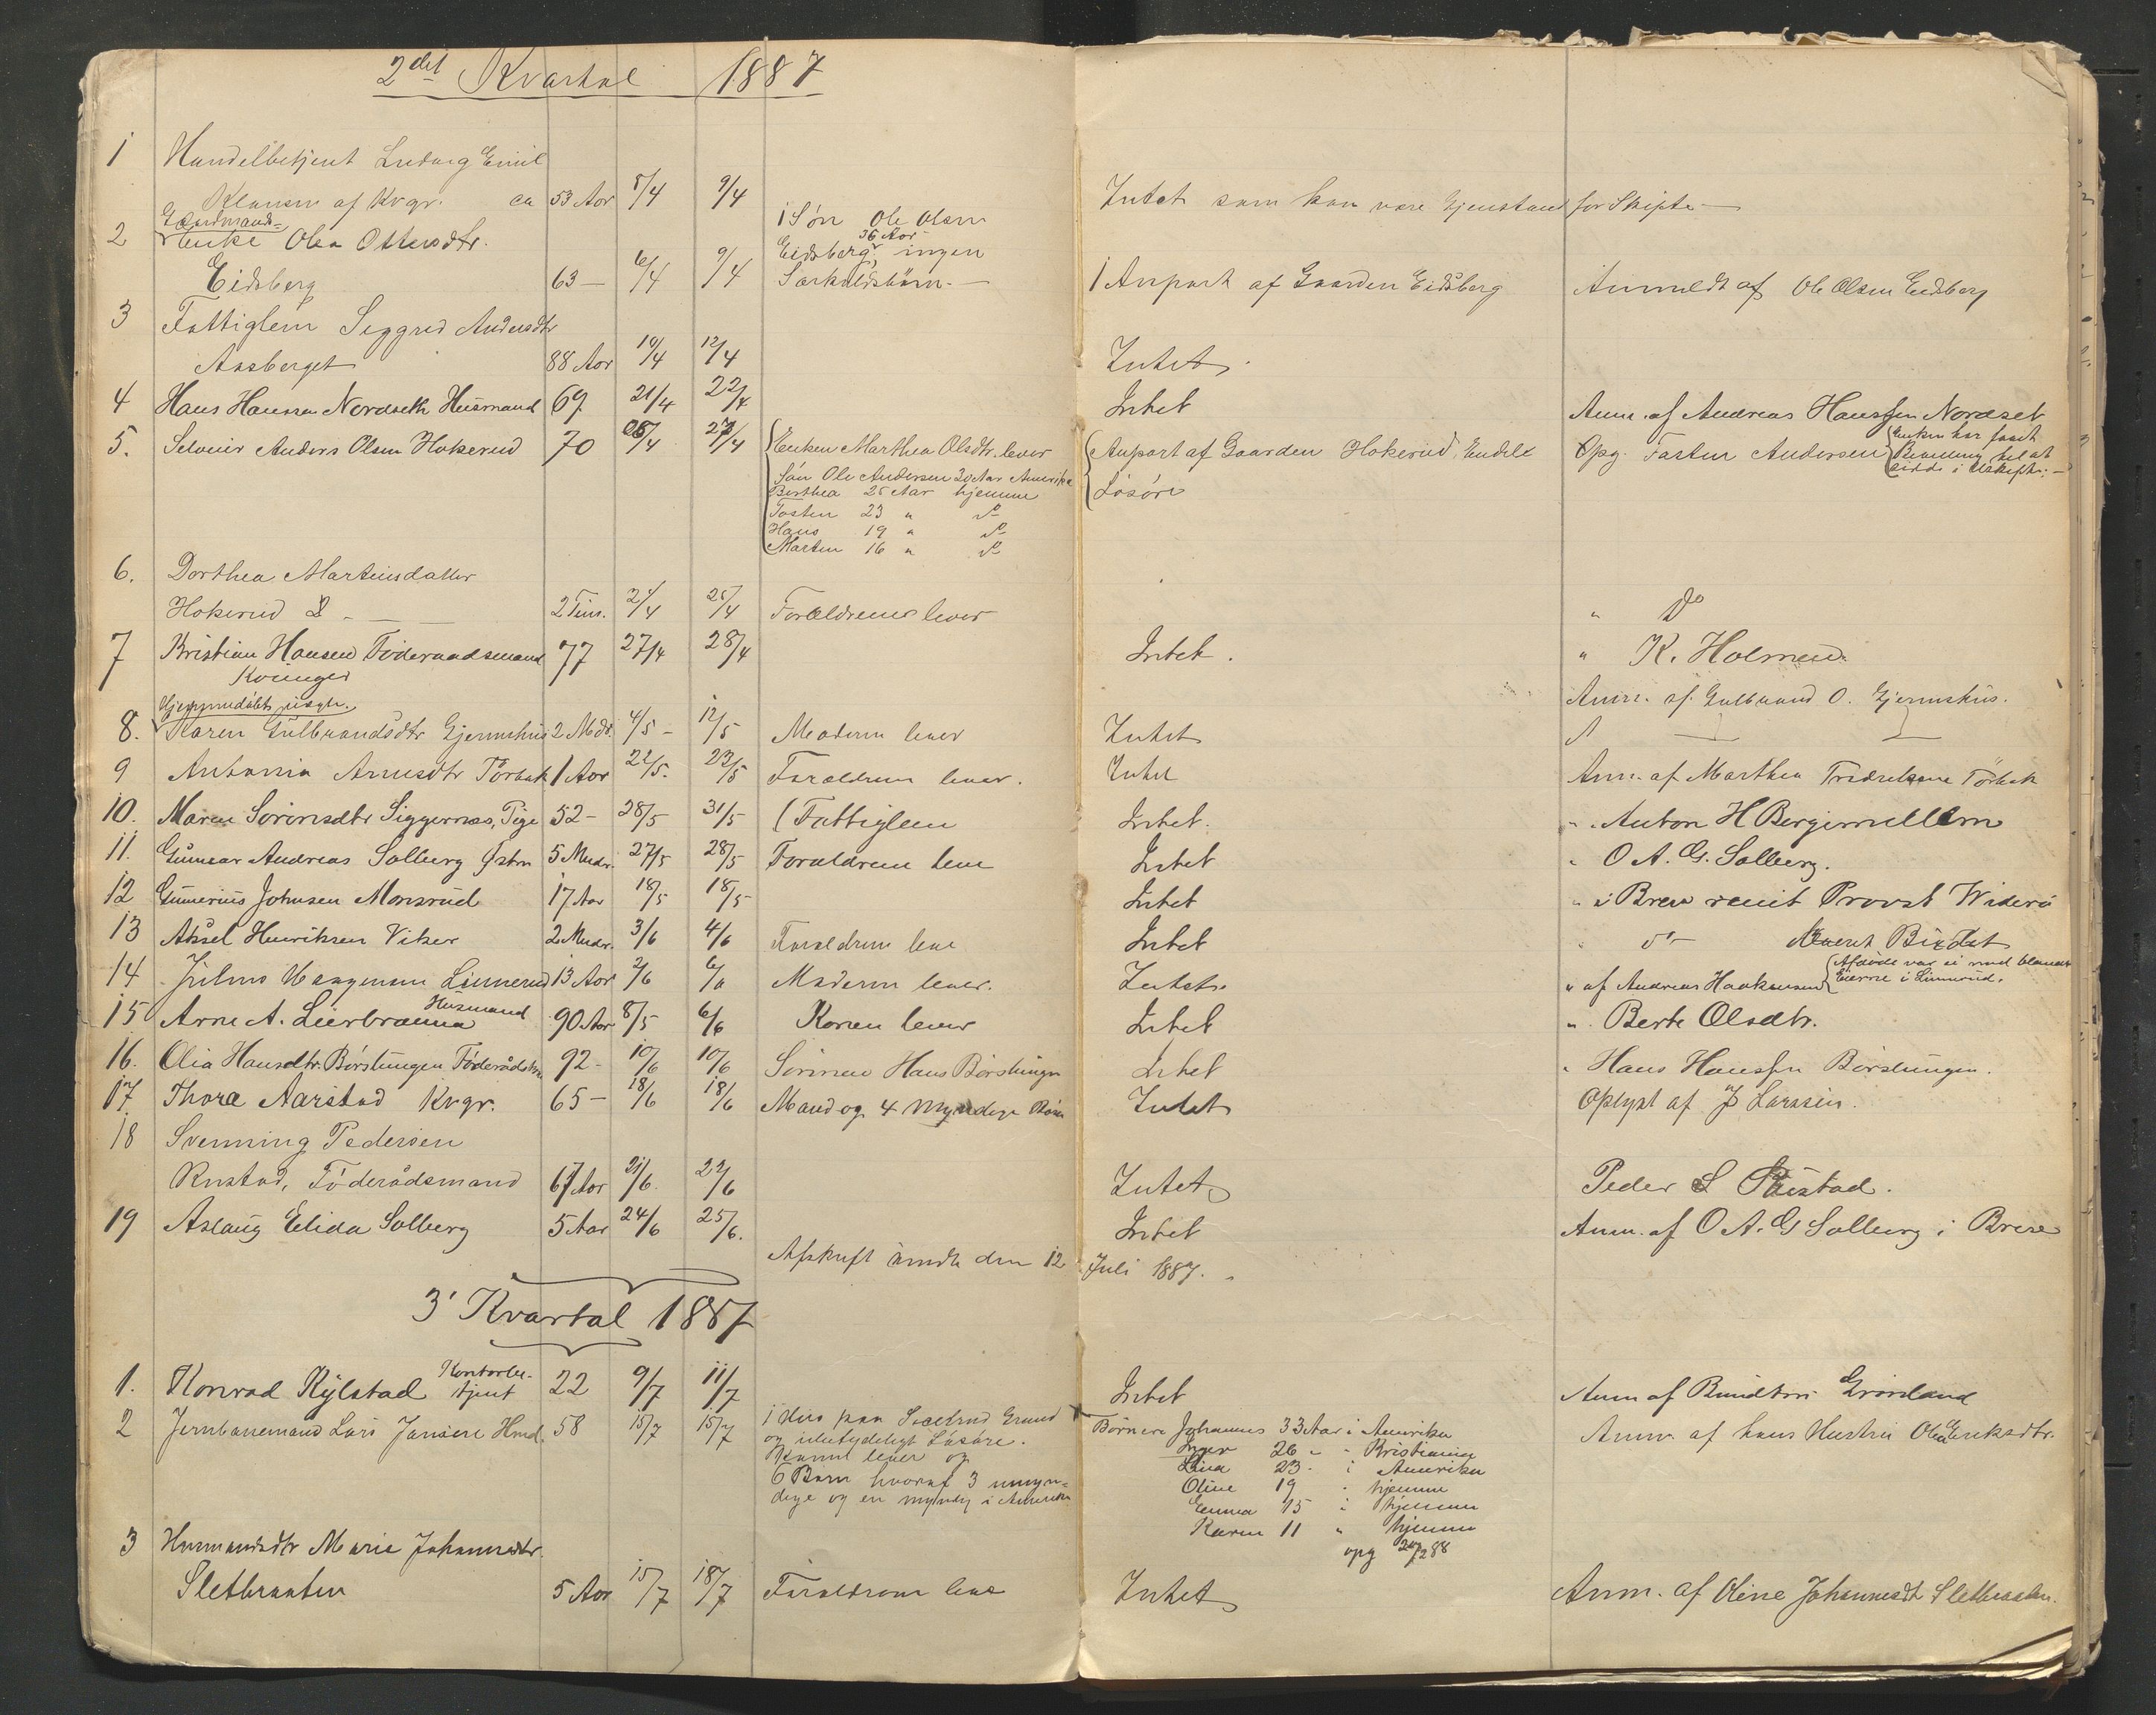 2det Kvartal 1887
1 Handelbetjent Ludvig Emil
Klausen af Kvgr. ca 53 Aar 8/4 9/4 Intet som kan være Gjenstand for Skifte
Gaardmands-
2 Enke Olea Ottersdtr. 1 Søn Ole Olsen
36 Aar
Eidsberg 63 — 6/4 9/4 Eidsberg, ingen Særkuldsbørn. — 1 Anpart af Gaarden Eidsberg Anmeldt af Ole Olsen Eidsberg
3 Fattiglem Siggrid Andersdtr
Aasberget 88 Aar 10/4 12/4 Intet.
4 Hans Hansen Nordseth Husmand 69 21/4 22/4 Intet Anm. af Andreas Hanssen Nordset
5. Selveier Anders Olsen Hokerud 70 27/4 Enken Marthea Olsdtr. lever Anpart af Gaarden Hokerud, Endel Opg. Tosten Andersen Enken har faaet
Søn Ole Andersen 30 Aar Amerika Løsøre Bevilling til at
Berthea 25 Aar hjemme sidde i Uskifte. —
Tosten 23 " do
Hans 19 " do
Marten 16 " do
6. Dorthea Martinsdatter
Hokerud 2 Tim. 24/4 25/4 Forældrene lever " Do
7 Kristian Hansen Föderaadsmand 77 27/4 28/4 Intet. " K. Holmen
Kvinger
Anm. af Gulbrand O. Gjermshus.
8. Karen Gulbrandsdtr Gjermshus 2 Mdr. 4/5 — 12/5 Moderen lever Intet
9 Antonia Arnesdtr Törbak 1 Aar 22/5. 23/5 Forældrene lever. Intet Anm. af Marthea Fredriksene Törbak
10. Maren Sörensdtr Siggernæs, Pige 52 — 28/5 31/5 (Fattiglem Intet. " Anton H Bergermellem
11. Gunnar Andreas Solberg 5 Mndr. 27/5 28/5 Forældrene leve Intet " O A. G. Solberg.
12 Gunerius Johnsen Monsrud 17 Aar 18/5 18/5 Intet " i Brev renit Provst Widerö
13 Aksel Henriksen Viker 2 Mndr. 3/6 4/6 Forældrene leve Intet " do
14 Julius Haagensen Linnerud 13 Aar 2/6 6/6 Moderen lever. Intet. " af Andreas Haakensen Afdöde var ei med blandt
Eierne i Linnerud.
15 Arne A. Lierbræna Husmand 90 Aar 8/5 6/6 Konen lever Intet " Berte Olsdtr.
16. Olia Hansdtr. Börstingen Föderådskone 92 — 10/6 10/6 Sönnen Hans Börstingen Intet " Hans Hanssen Börstingen.
17 Thora Aarstad Kvgr. 65 — 18/6 18/6 Mand og 4 myndige Börn Intet Oplyst af P Larssen.
18 Svenning Pedersen
Rustad, Föderådsmand 67 Aar 21/6. 22/6 Intet Peder S Rustad.
19 Aslaug Elida Solberg 5 Aar 24/6 25/6. Intet Anm. af O A. G Solberg i Breve
Afskrift sendt den 12 Juli 1887.
3' Kvartal 1887
1. Konrad Kylstad Kontorbe-
tjent 22 9/7 11/7 Intet Anm af Grönland
2 Jernbanemand Lars Jansen Hmd. 58 15/7 15/7 1 Hus paa Grund Börnene Johannes 33 Aar i Amerika Anm. af hans Hustru Olea Eriksdtr.
og ubetydeligt Løsøre. Inger 26 " " Kristiania
Konen lever og Lina 23 " i Amerika
6 Børn hvoraf 3 umyn- Oline 19 " hjemme
dige og en myndig i Amerika Emma 15 i hjemme
Karen 11 " hjemme
opg 20/2 88
3 Husmandsdtr Marie Johannesdtr.
Sletbraaten 5 Aar 15/7 18/7 Forældrene leve Intet Anm. af Oline Johannesdt Sletbraaten.